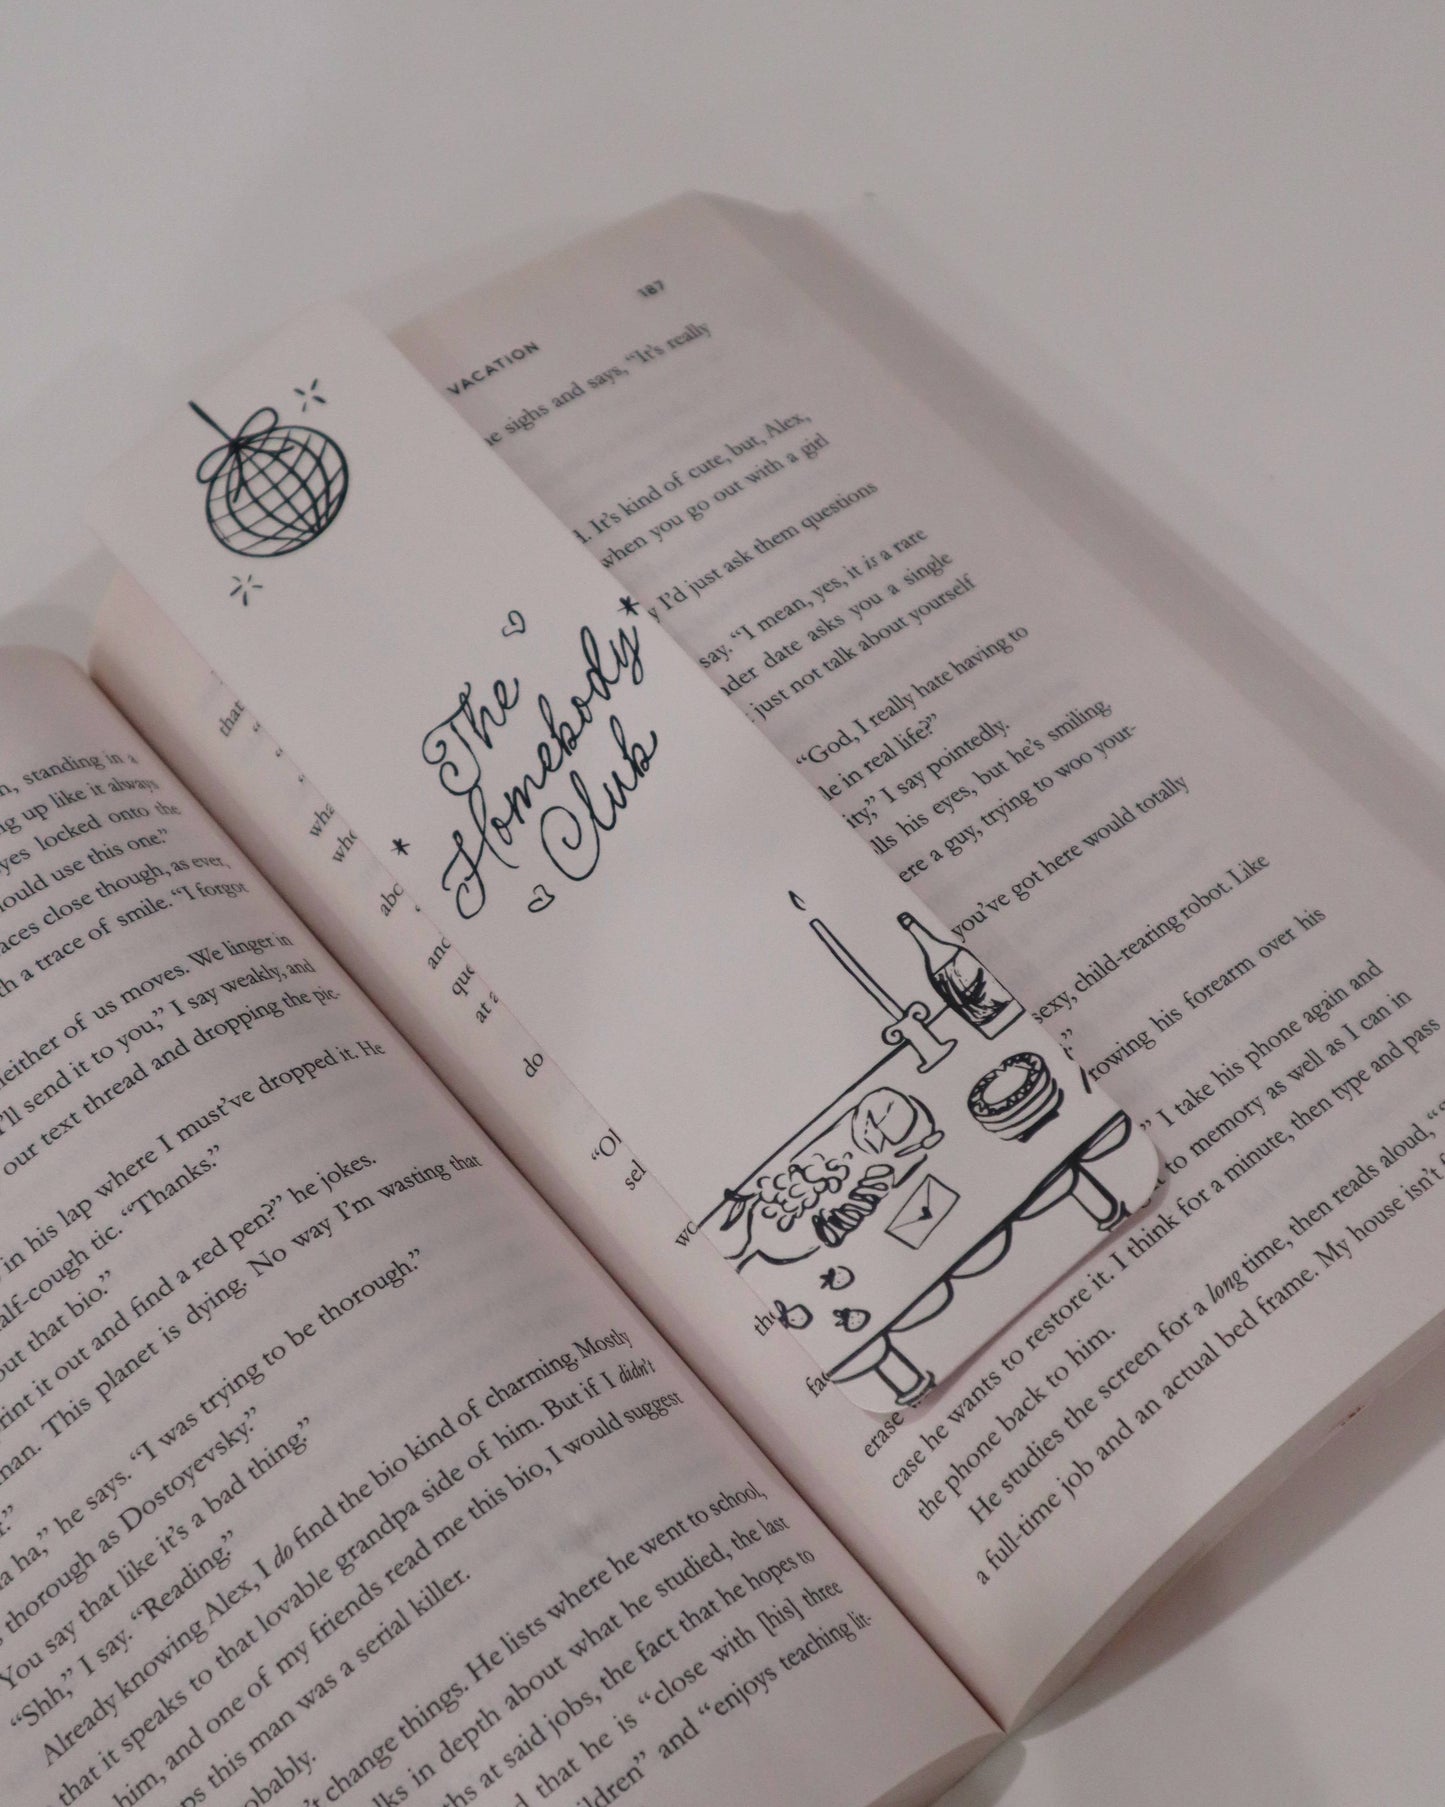 n, standing in a
ng up like it always
yes locked onto the
hould use this one.”
aces close though, as ever,
th a trace of smile. “I forgot
neither of us moves. We linger in
I’ll send it to you,” I say weakly, and
our text thread and dropping the pic-
in his lap where I must’ve dropped it. He
alf-cough tic. “Thanks.”
out that bio.”
rint it out and find a red pen?” he jokes.
man. This planet is dying. No way I’m wasting that
r.”
a ha,” he says. “I was trying to be thorough.”
thorough as Dostoyevsky.”
You say that like it’s a bad thing.”
“Shh,” I say. “Reading.”
Already knowing Alex, I do find the bio kind of charming. Mostly
that it speaks to that lovable grandpa side of him. But if I didn’t
him, and one of my friends read me this bio, I would suggest
ps this man was a serial killer.
obably.
’t change things. He lists where he went to school,
lks in depth about what he studied, the last
ths at said jobs, the fact that he hopes to
d that he is “close with [his] three
ldren” and “enjoys teaching lit-
The
Homebody
Club
VACATION 187
he sighs and says, “It’s really
d. It’s kind of cute, but, Alex,
when you go out with a girl
y I’d just ask them questions
say. “I mean, yes, it is a rare
nder date asks you a single
just not talk about yourself
“God, I really hate having to
le in real life?”
ity,” I say pointedly.
lls his eyes, but he’s smiling.
ere a guy, trying to woo your-
you’ve got here would totally
sexy, child-rearing robot. Like
”
rowing his forearm over his
” I take his phone again and
to memory as well as I can in
erase
case he wants to restore it. I think for a minute, then type and pass
the phone back to him.
He studies the screen for a long time, then reads aloud, “
a full-time job and an actual bed frame. My house isn’t
that
wha
who
abo
and
que
at a
do
“Ol
sel
wo
the
fac